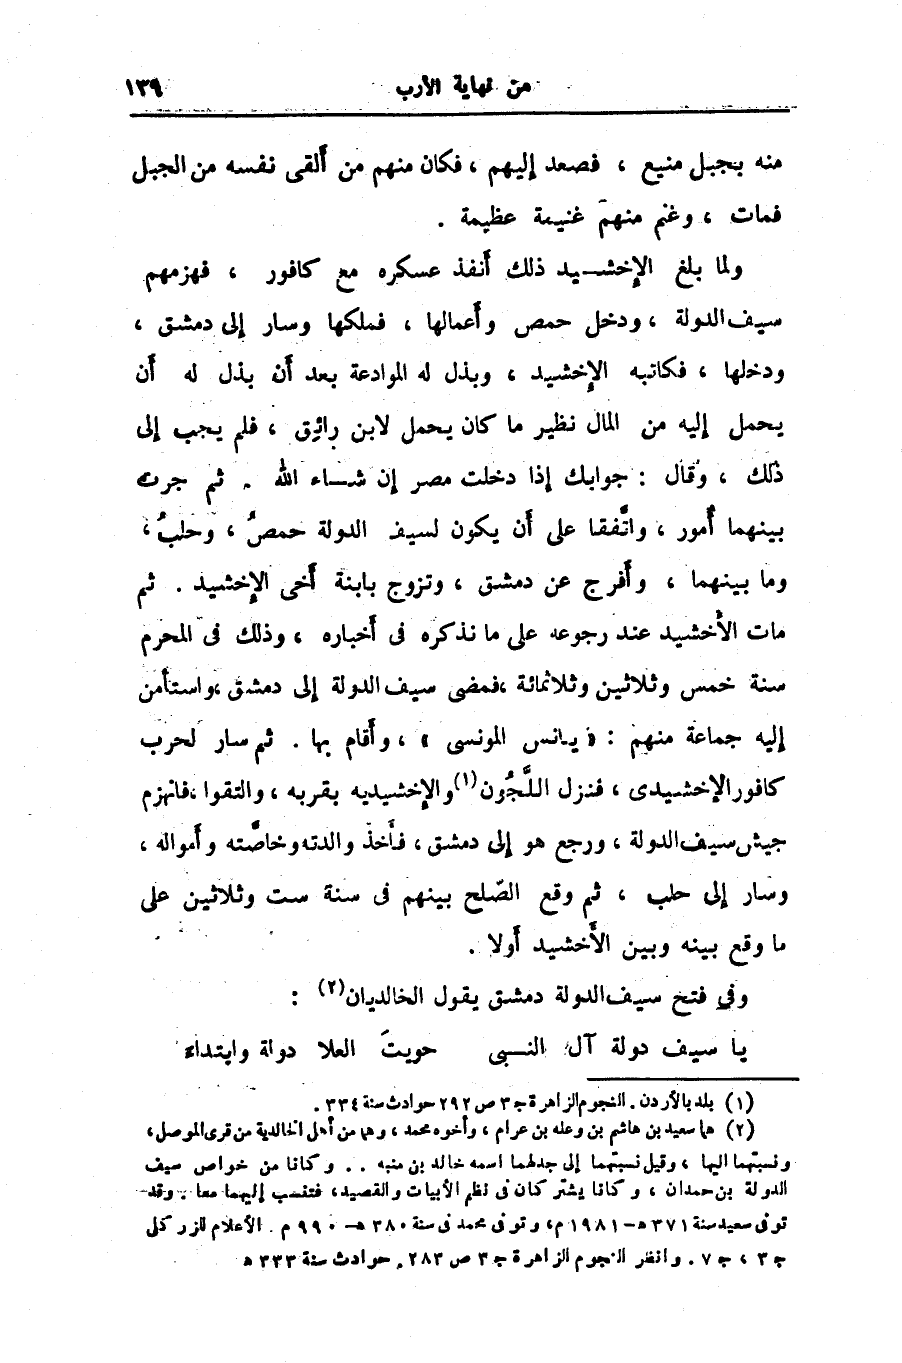 من نهاية الأرب ١٣٩
منه بجبل منيع ، فصعد إليهم ، فكان منهم من ألقى نفسه من الجبل
فمات ، وغنم منهم غنيمة عظيمة .
ولما بلغ الإخشـــيد ذلك أنفذ عسكره مع كافور ، فهزمهم
سيف الدولة ، ودخل حمص وأعمالها ، فملكها وسار إلى دمشق ،
ودخلها ، فكاتبه الإخشيد ، وبذل له الموادعة بعد أن بذل له أن
يحمل إليه من المال نظير ما كان يحمل لابن رائق ، فلم يجب إلى
ذلك ، وقال : جوابك إذا دخلت مصر إن شـــاء الله . ثم جرت
بينهما أمور ، واتَّفقا على أن يكون لسيف الدولة حمصُ ، وحلبُ ،
وما بينهما ، وأفرج عن دمشق ، وتزوج بابنة أخى الإخشيد . ثم
مات الأخشيد عند رجوعه على ما نذكره فى أخباره ، وذلك فى المحرم
سنة خمس وثلاثين وثلاثمائة ،فمضى سيف الدولة إلى دمشق ،واستأمن
إليه جماعة منهم : « يانس المونسى » ، وأقام بها . ثم سار لحرب
كافور الإخشيدى ، فنزل اللَّجُون(١) والإخشيديه بقربه ، والتقوا ،فانهزم
جيش سيف الدولة ، ورجع هو إلى دمشق ، فأخذ والدته وخاصَّته وأمواله ،
وسار إلى حلب ، ثم وقع الصّلح بينهم فى سنة ست وثلاثين على
ما وقع بينه وبين الأخشيد أولا .
وفى فتح سيف الدولة دمشق يقول الخالديان(٢) :
يا سيف دولة آل النـــبى حويتَ العلا دولة وابتداء
(١) بلد بالأردن . النجوم الزاهرة جـ ٣ ص ٢٩٢ حوادث سنة ٣٣٤ .
(٢) هما سعيد بن هاشم بن وعله بن عرام ، وأخوه محمد ، وهما من أهل الخالدية من قرى الموصل ،
ونسبتهما اليها ، وقيل نسبتهما إلى جدلهما اسمه خالد بن منبه . . وكانا من خواص سيف
الدولة بن حمدان ، وكانا يشتركان فى نظم الأبيات والقصيد، فتنسب إليهما معا . وقد
توفى سعيد سنة ٣٧١ هـ – ١٩٨١ م، وتوفى محمد فى سنة ٣٨٠ هـ – ٩٩٠ م . الأعلام للزركلى
جـ ٣ ، جـ ٧ . وانظر النجوم الزاهرة جـ ٣ ص ٢٨٣ . حوادث سنة ٣٣٣ هـ